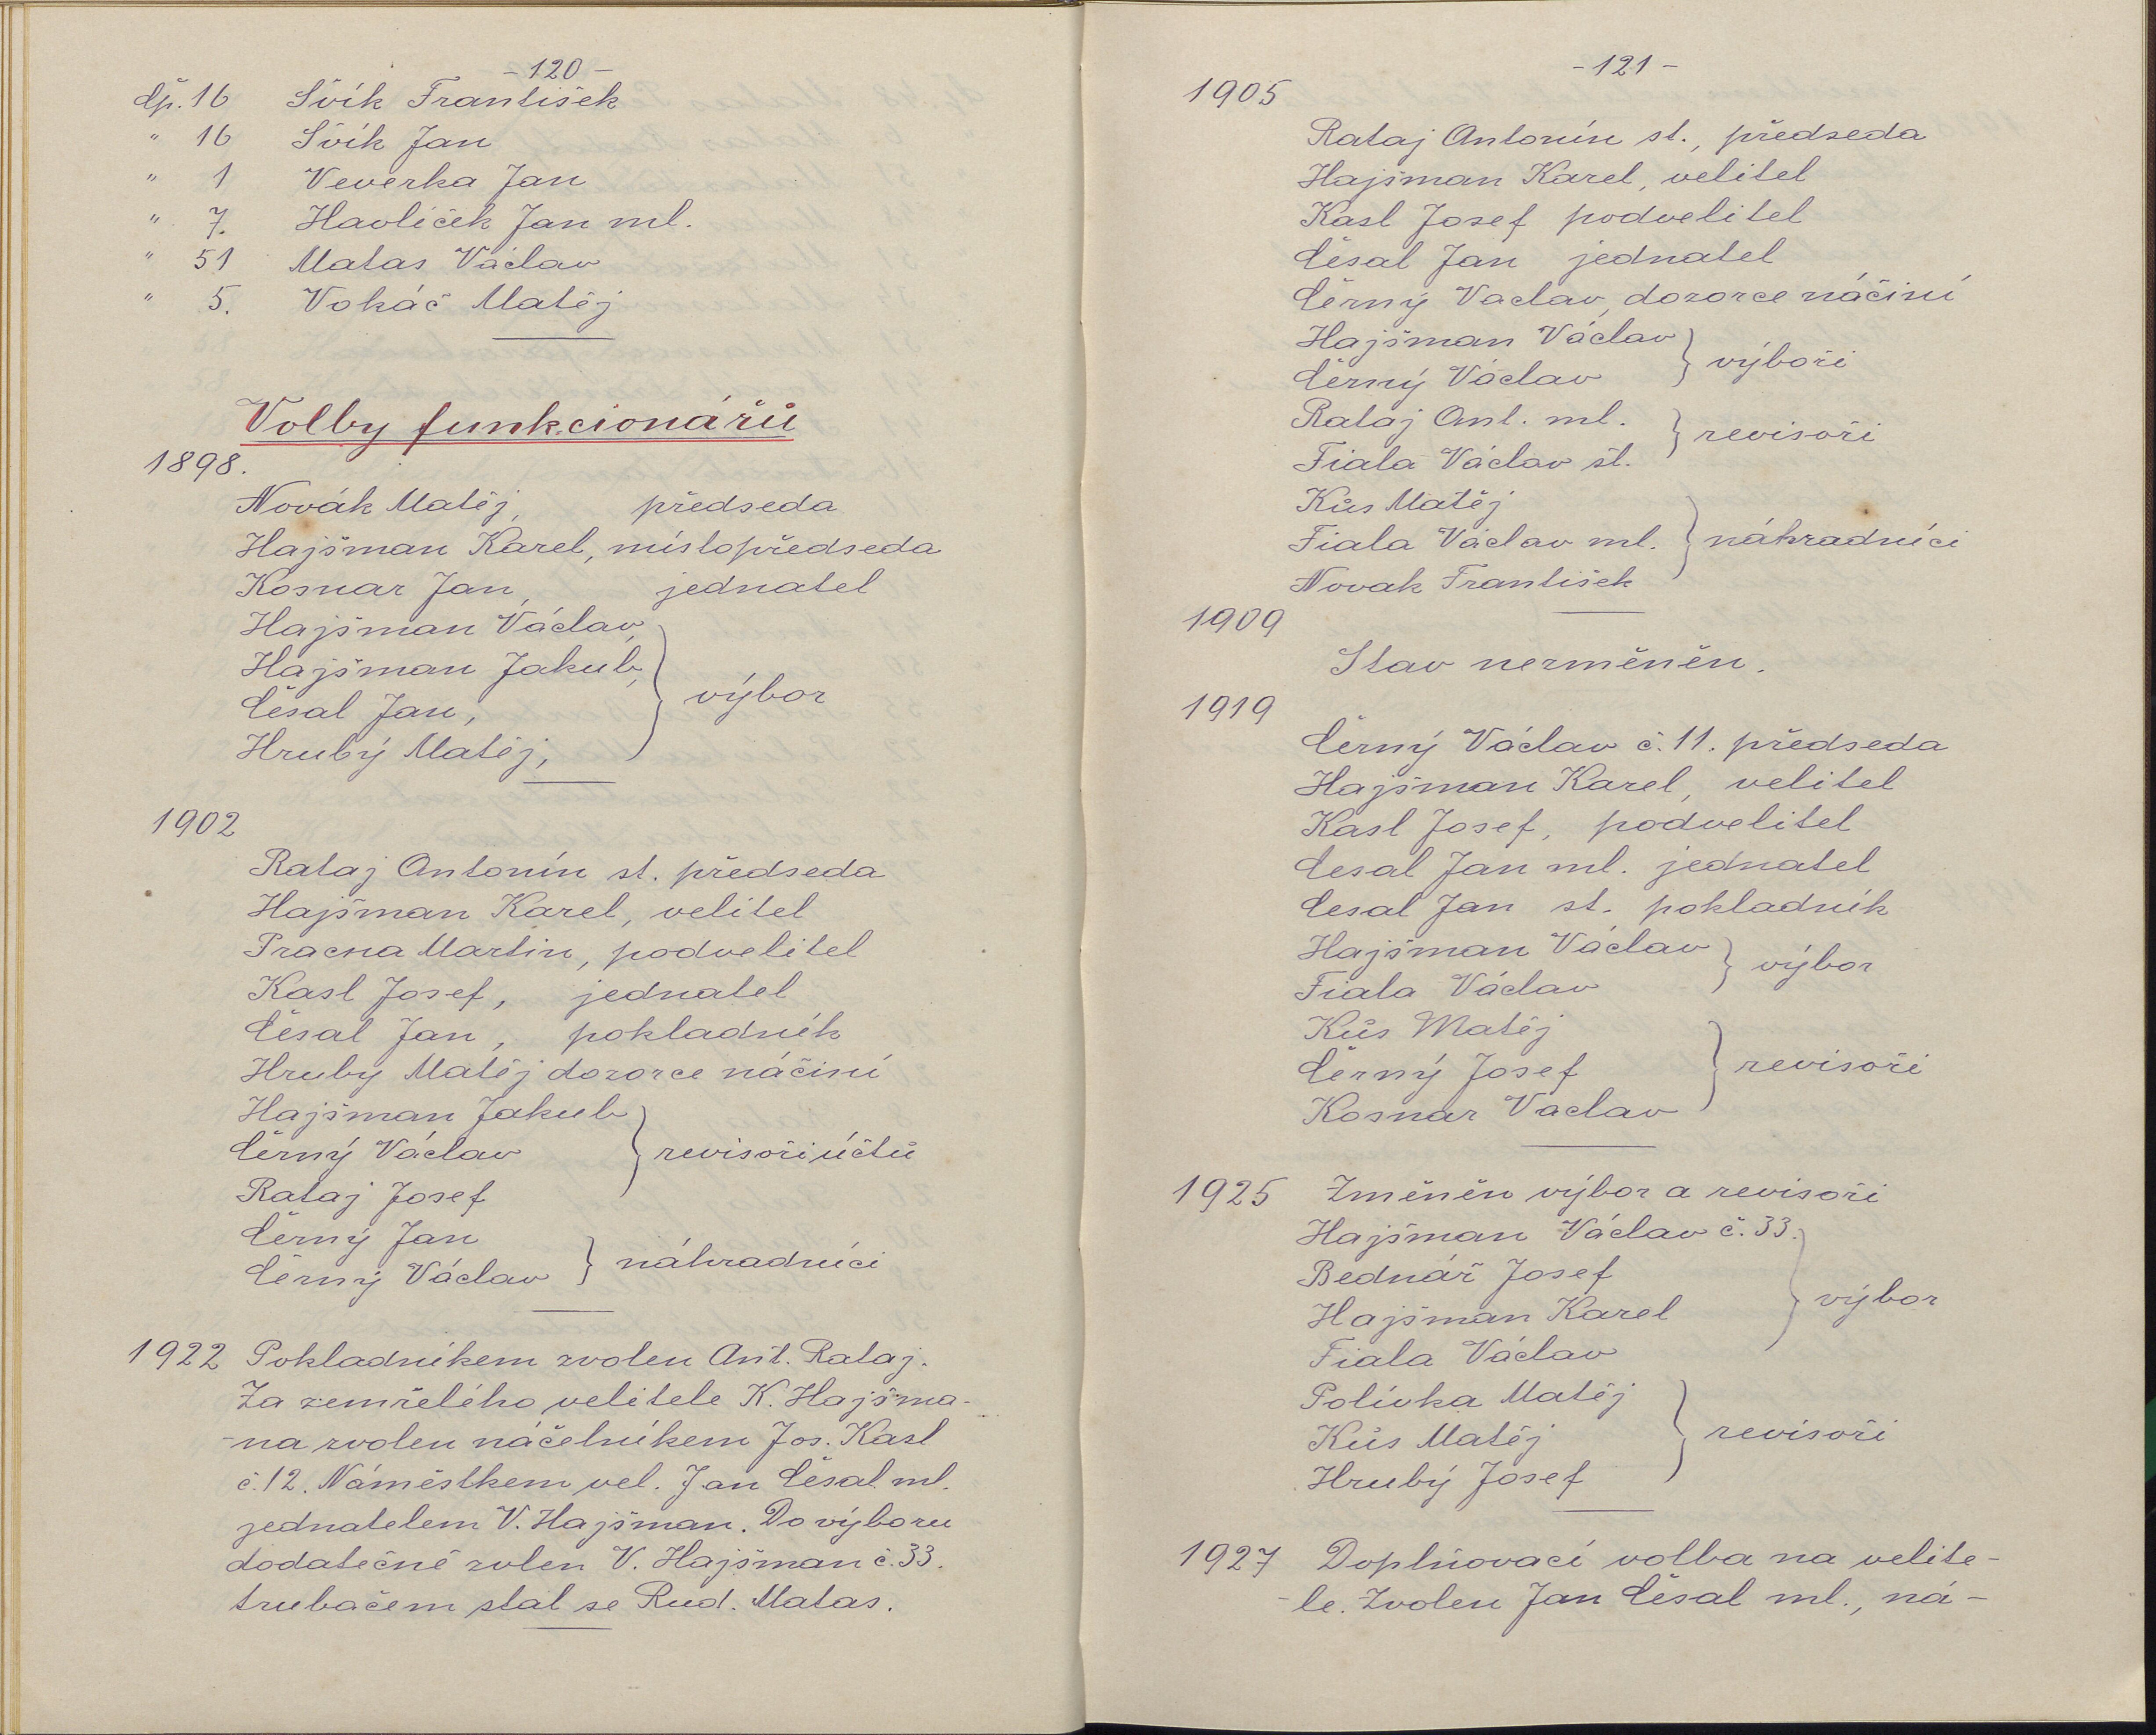 - 120 -
Čp. 16 Švík František
" 16 Švík Jan
" 1 Veverka Jan
" 7. Havlíček Jan ml.
" 51 Matas Václav
" 5. Vokáč Matěj
Volby funkcionářů
1898.
Novák Matěj, předseda
Hajšman Karel, místopředseda
Kosnar Jan, jednatel
Hajšman Václav,
Hajšman Jakub,
Čésal Jan, } výbor
Hrubý Matěj,
1902
Rataj Antonín st. předseda
Hajšman Karel, velitel
Pracna Martin, podvelitel
Kasl Josef, jednatel
Čésal Jan, pokladník
Hruby Matěj dozorce náčiní
Hajšman Jakub
Černý Václav } revisoři účtů
Rataj Josef
Černý Jan
Černý Václav } náhradníci
1922 Pokladníkem zvolen Ant. Rataj.
Za zemřelého velitele K. Hajšma-
-na zvolen náčelníkem Jos. Kasl
č. 12. Náměstkem vel. Jan Čésal ml.
jednatelem V. Hajšman. Do výboru
dodatečně zvlen V. Hajšman č. 33.
trubačem stal se Rud. Matas.
- 121 -
1905
Rataj Antonín st., předseda
Hajšman Karel, velitel
Kasl Josef podvelitel
Čésal Jan jednatel
Černý Vaclav, dozorce náčiní
Hajšman Václav
Černý Václav } výboři
Rataj Ant. ml.
Fiala Václav st. } revisoři
Kůs Matěj
Fiala Václav ml. } náhradníci
Novak František
1909
Stav nezměněn.
1919
Černý Václav č. 11. předseda
Hajšman Karel, velitel
Kasl Josef, podvelitel
Cesal Jan ml. jednatel
Cesal Jan st. pokladník
Hajšman Václav
Fiala Václav } výbor
Kůs Matěj
Černý Josef } revisoři
Kosnar Vaclav
1925 Změněn výbor a revisoři
Hajšman Václav č. 33.
Bednář Josef
Hajšman Karel } výbor
Fiala Václav
Polívka Matěj
Kůs Matěj } revisoři
Hrubý Josef
1927 Doplňovací volba na velite-
-le. Zvolen Jan Čésal ml., ná-